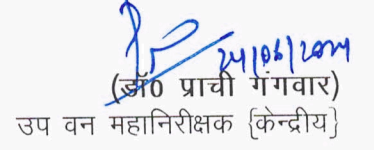 24/06/2024
(डॉ0 प्राची गंगवार)
उप वन महानिरीक्षक {केन्द्रीय}